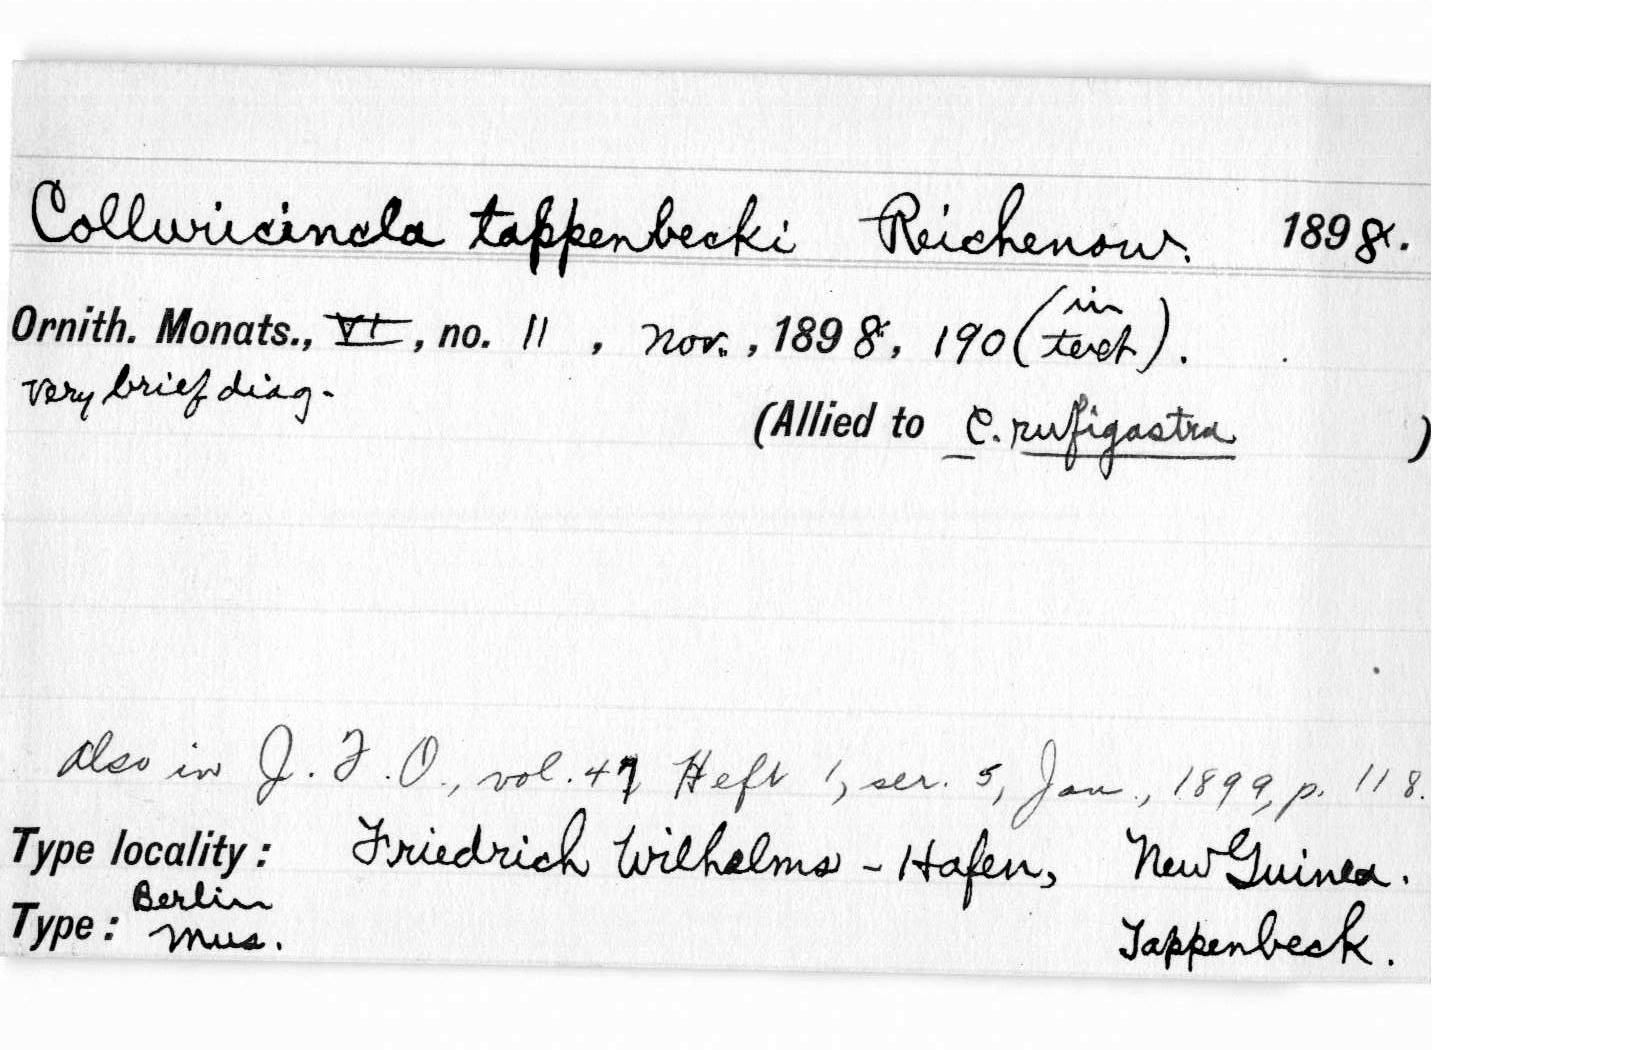 Colluricincla tappenbecki Reichenow. 1898.
Ornith. Monats., VI, no. 11, Nov., 1898, 190 (in text).
Very brief diag.
(Allied to C. rufigastra)
Also in J. F. O., vol. 47 Heft 1, ser. 5, Jan., 1899, p. 118.
Type locality: Friedrich Wilhelms - Hafen, New Guinea.
Type: Berlin Mus. Tappenbeck.